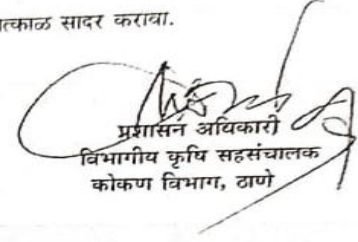 त्काळ सादर करावा.
प्रशासन अधिकारी
विभागीय कृषि सहसंचालक
कोकण विभाग, ठाणे